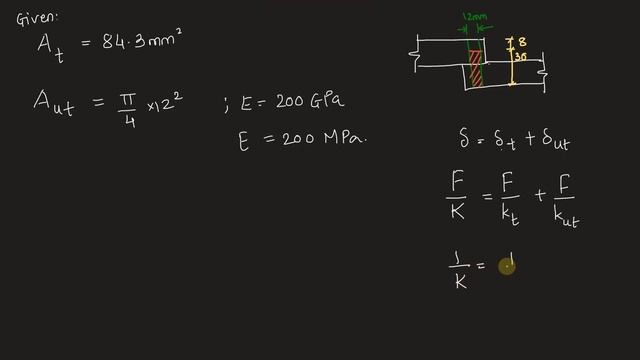 Given:
A_t = 84.3 mm²
A_ut = π/4 ×12² ; E = 200 GPa
E = 200 MPa.
12mm
8
30
δ = δ_t + δ_ut
F/K = F/k_t + F/k_ut
1/K = 1